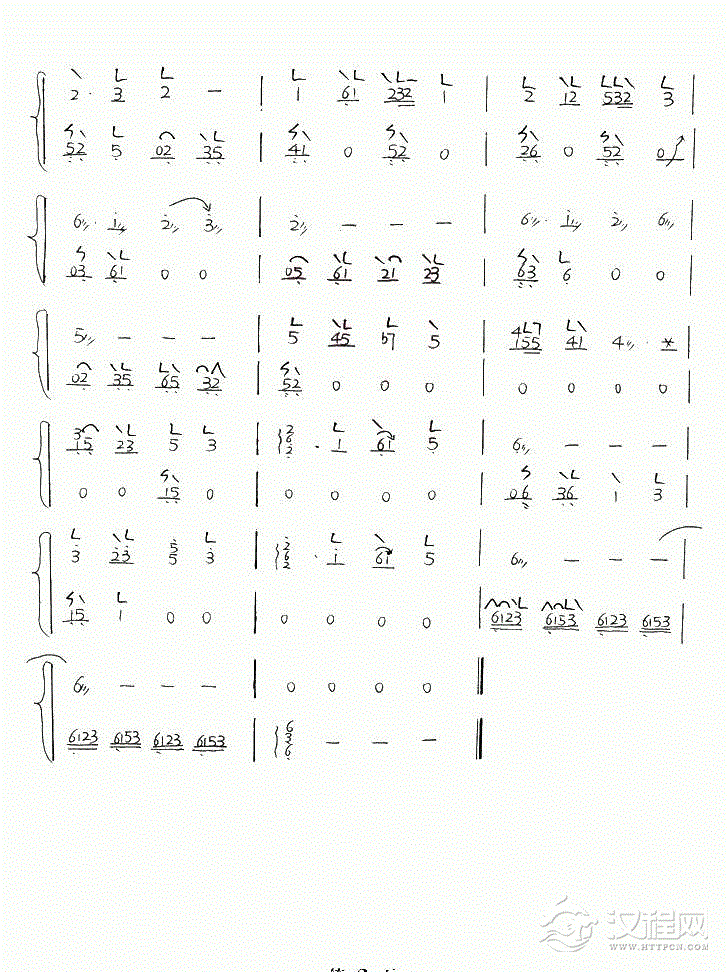 2 · 3 2 — | 1 61 232 1 | 2 12 532 3
52 5 02 35 | 41 0 52 0 | 26 0 52 0
6 · 1 2 3 | 2 — — — | 6 · 1 2 6
03 61 0 0 | 05 61 21 23 | 63 6 0 0
5 — — — | 5 45 b7 5 | 155 41 4 · *
02 35 65 32 | 52 0 0 0 | 0 0 0 0
15 23 5 3 | 2 6 2 · 1 61 5 | 6 — — —
0 0 15 0 | 0 0 0 0 | 06 36 1 3
3 23 5 5 3 | 2 6 2 · 1 61 5 | 6 — — —
15 1 0 0 | 0 0 0 0 | 6123 6153 6123 6153
6 — — — | 0 0 0 0
6123 6153 6123 6153 | 6 3 6 — — —
汉程网
HTTPCN.COM